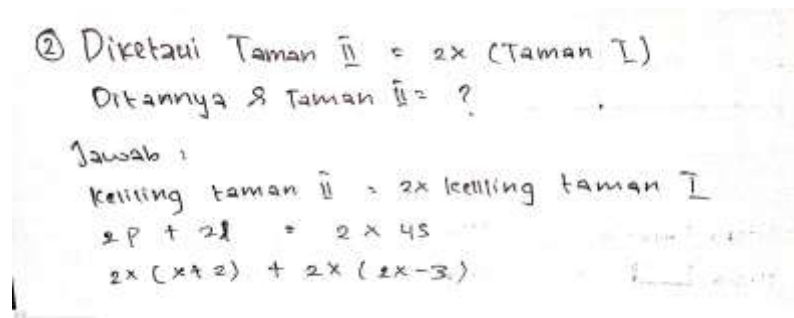 ② Diketaui Taman II = 2x (Taman I)
Ditannya & Taman II = ?
Jawab :
Keliling taman II = 2x keliling taman I
2p + 2l = 2 x 4s
2x (x+2) + 2x (2x-3)